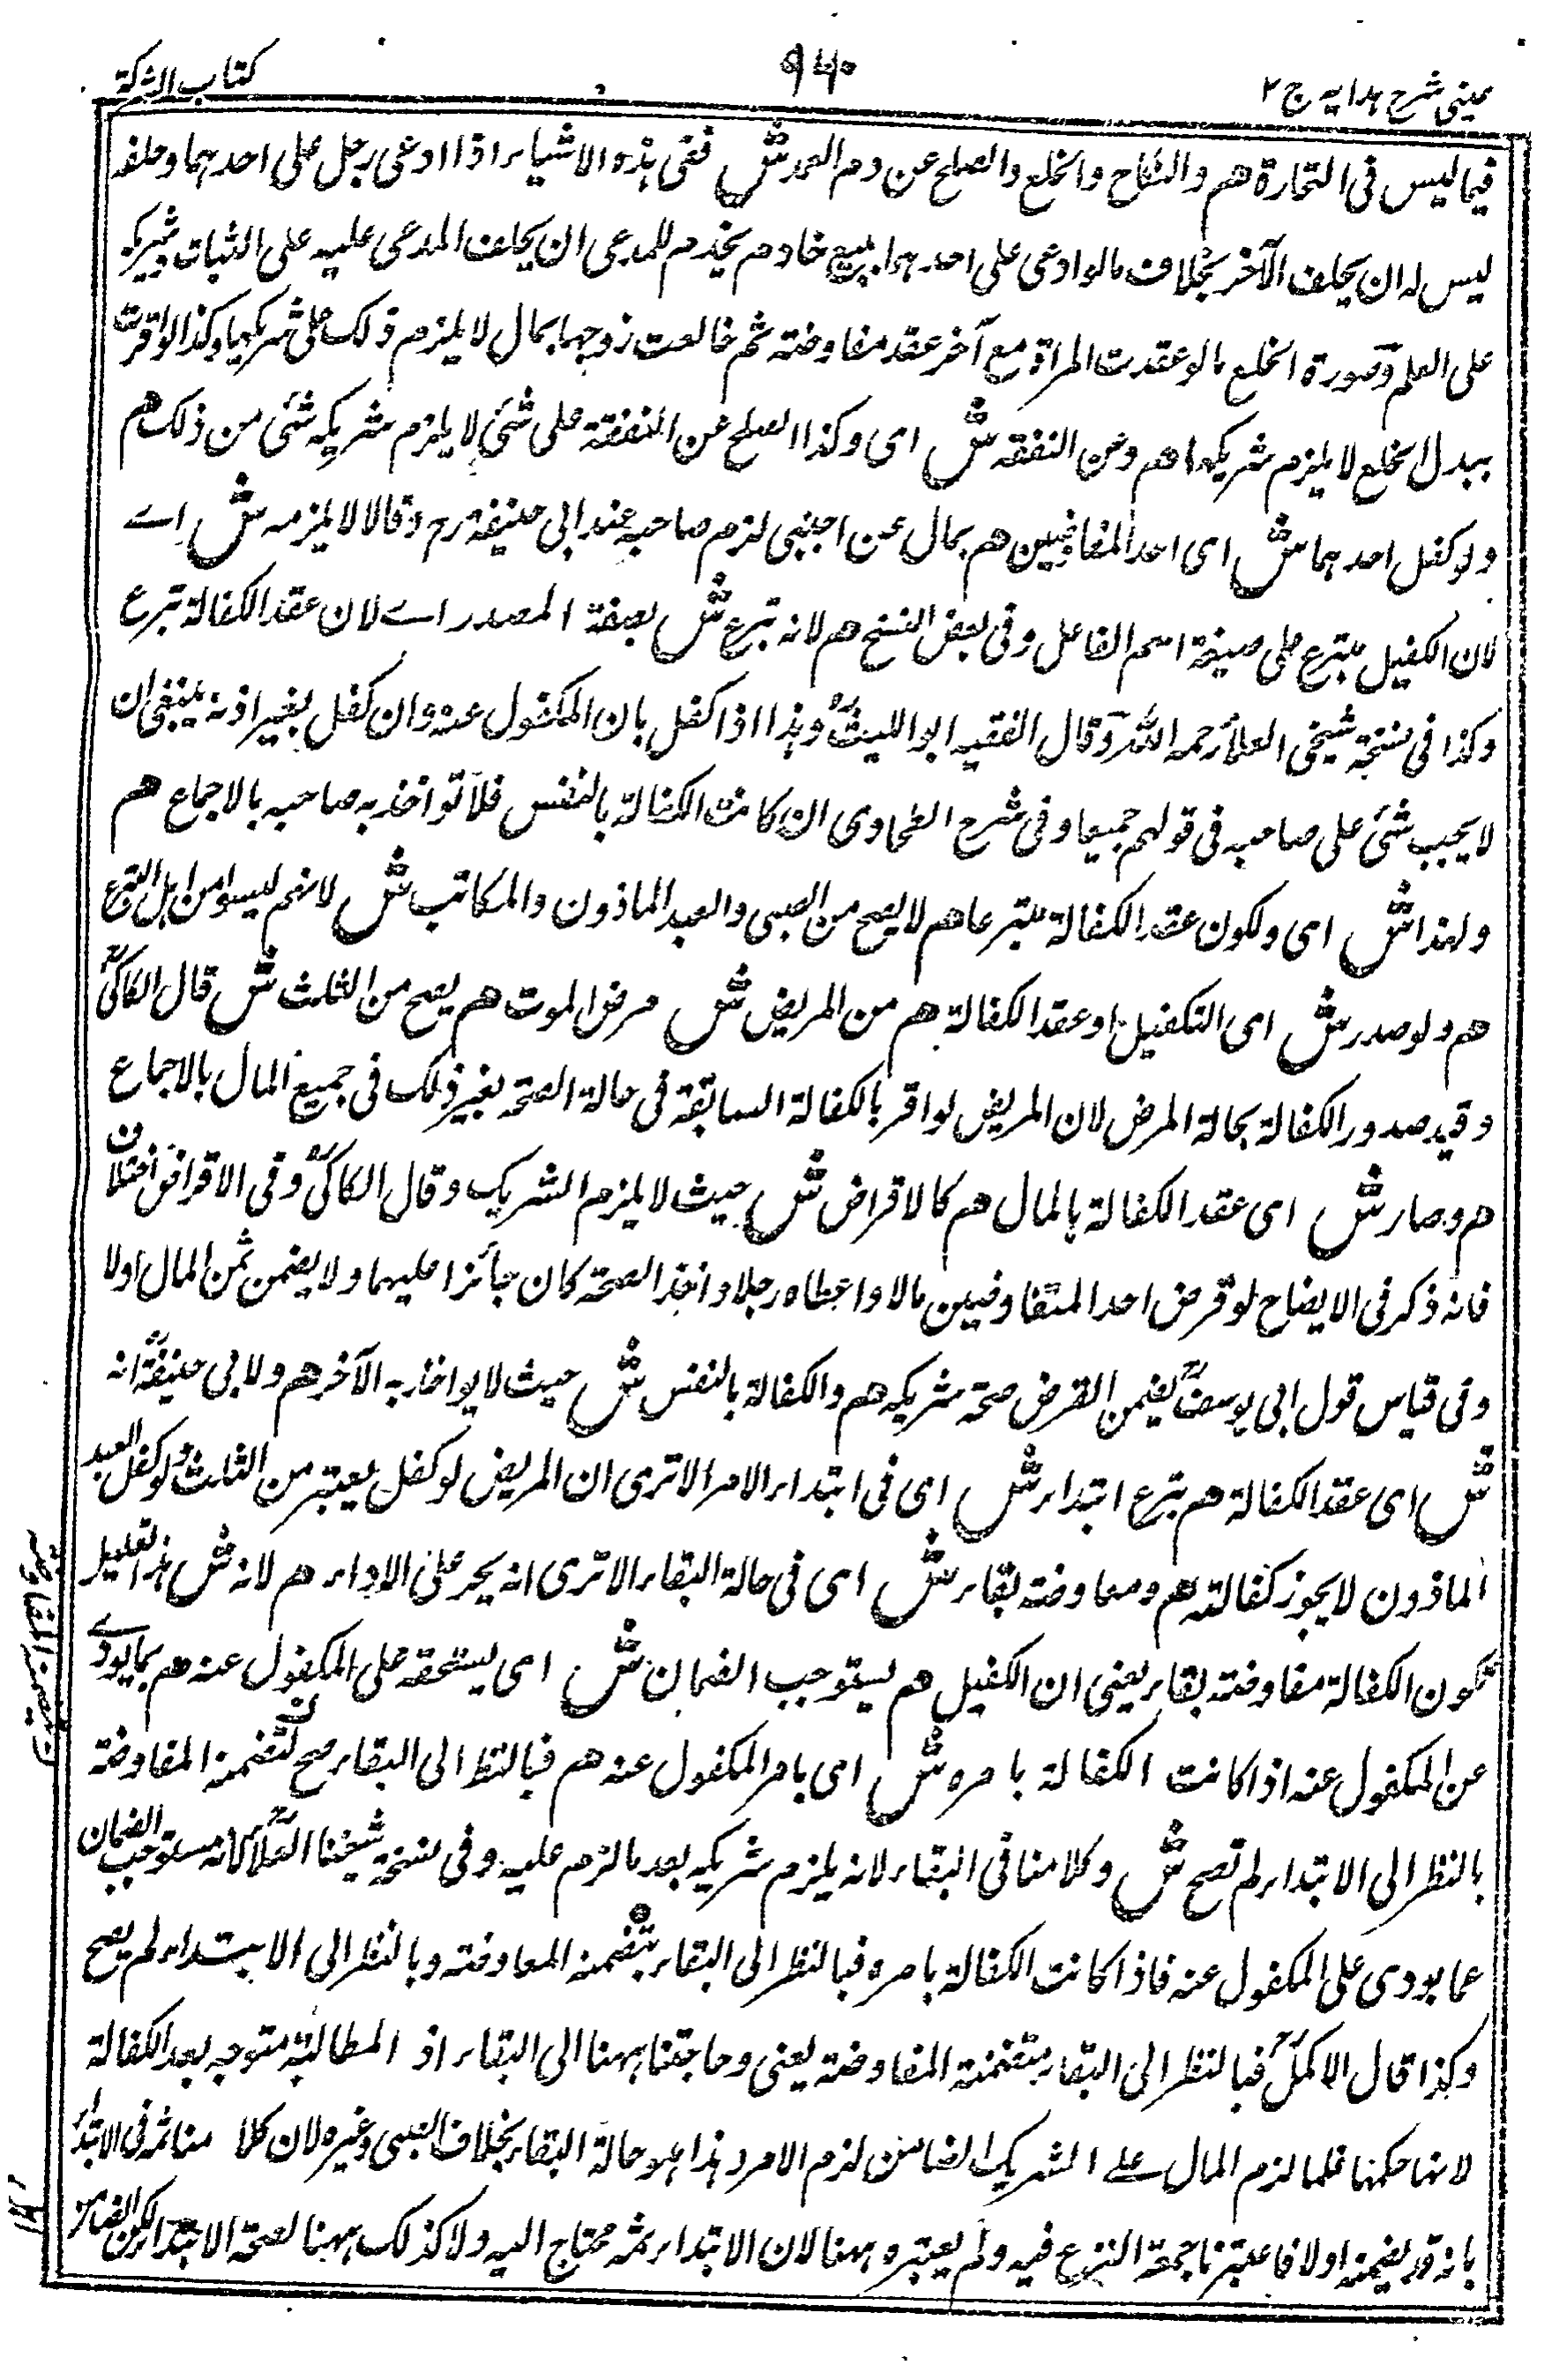 عینی شرح ہدایہ ج ۲
۹۴۰
کتاب الشرکة
فیما لیس فی التجارة هم والنکاح والخلع والصلح عن دم العمد ش ففی ہذہ الاشیاء اذا ادعی رجل علی احدہما وحلفہ
لیس لہ ان یحلف الآخر بخلاف مالو ادعی علی احدہما بیع خادم یخدم للمدعی ان یحلف المدعی علیہ علی الثبات وشریکہ
علی العلم وصورة الخلع مالو عقدت المراة مع آخر عقد مفاوضة ثم خالعت زوجہا بمال لا یلزم ذلک علی شریکہا وکذا لو اقرت
ببدل الخلع لا یلزم شریکہا هم وعن النفقہ ش ای وکذا الصلح عن النفقة علی شئی لا یلزم شریکہ شئی من ذلک هم
ولو کفل احدہما ش ای احد المفاوضین هم بمال عن اجنبی لزم صاحبہ عند ابی حنیفة رح وقالا لا یلزمہ ش اے
لان الکفیل متبرع علی صیغة اسم الفاعل وفی بعض النسخ هم لانہ تبرع ش بصفة المصدر اے لان عقد الکفالة تبرع
وکذا فی نسخة شیخی العلاء رحمہ اللہ وقال الفقیہ ابو اللیث وہذا اذا کفل بان المکفول عنہ وان کفل بغیر اذنہ ینبغی ان
لا یجب شئی علی صاحبہ فی قولہم جمیعا وفی شرح الطحاوی ان کانت الکفالة بالنفس فلا تواخذ بہ صاحبہ بالاجماع هم
ولہذا ش ای ولکون عقد الکفالة متبرعا هم لا یصح من الصبی والعبد الماذون والمکاتب ش لانہم لیسوا من اہل التبرع
هم ولو صدر ش ای التکفیل او عقد الکفالة هم من المریض ش مرض الموت هم یصح من الثلث ش قال الکاکی
وقید صدور الکفالة بحالة المرض لان المریض لو اقر بالکفالة السابقة فی حالة الصحة یغیر ذلک فی جمیع المال بالاجماع
هم وصار ش ای عقد الکفالة بالمال هم کالاقراض ش حیث لا یلزم الشریک وقال الکاکی وفی الاقراض اختلاف
فانہ ذکر فی الایضاح لو قرض احد المتفاوضین مالا واعطاہ رجلا واخذ الصحة کان جائزا علیہما ولا یضمن ثمن المال اولا
وفی قیاس قول ابی یوسف یضمن القرض صحة شریکہ هم والکفالة بالنفس ش حیث لا یواخذ بہ الآخر هم ولابی حنیفة انہ
ش ای عقد الکفالة هم تبرع ابتداء ش ای فی ابتداء الامر الا تری ان المریض لو کفل یعتبر من الثلث ولو کفل العبد
الماذون لا یجوز کفالتہ هم ومعاوضة بقاء ش ای فی حالة البقاء الا تری انہ یجبر علی الاداء هم لانہ ش ہذا تعلیل
تکون الکفالة مفاوضة بقاء یعنی ان الکفیل هم یستوجب الضمان ش ای یستحقہ علی المکفول عنہ هم بما یودے
عن المکفول عنہ اذا کانت الکفالة بامرہ ش ای بامر المکفول عنہ هم فبالنظر الی البقاء صح لتضمنہ المفاوضة
بالنظر الی الابتداء لم تصح ش وکلامنا فی البقاء لانہ یلزم شریکہ بعد مالزم علیہ وفی نسخة شیخنا العلاء لانہ مستوجب الضمان
عما یودی علی المکفول عنہ فاذا کانت الکفالة بامرہ فبالنظر الی البقاء یتضمنہ المعاوضة وبالنظر الی الابتداء لم یصح
وکذا قال الاکمل فبالنظر الی البقاء یتضمنہ المفاوضة یعنی وحاجتنا ہہنا الی البقاء اذ المطالبة متوجہ بعد الکفالة
لانہا حکمہا فلما لزم المال علے الشریک الضامن لزم الامر وہذا ہو حالة البقاء بخلاف الصبی وغیرہ لان کلامنا ثمہ فی الابتداء
بانہ قد یضمنہ اولا فاعتبرنا جہة التبرع فیہ ولم یعتبرہ ہہنا لان الابتداء ثمہ محتاج الیہ ولا کذلک ہہنا لصحة الابتداء لکن الضامن